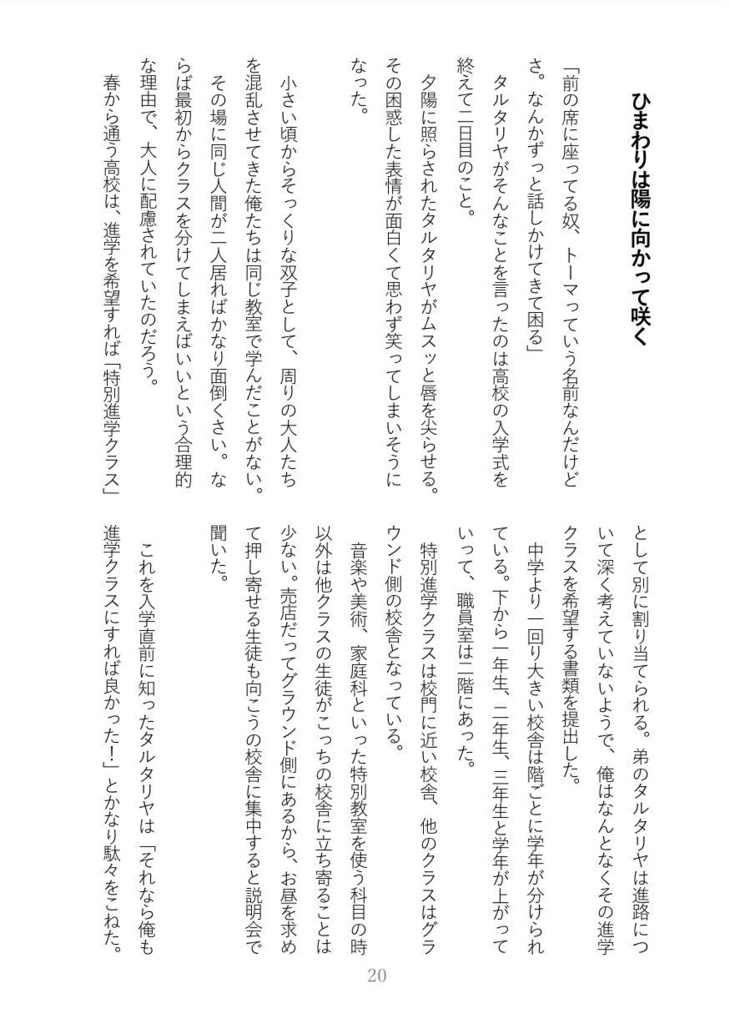 ひまわりは陽に向かって咲く
「前の席に座ってる奴、トーマっていう名前なんだけど
さ。なんかずっと話しかけてきて困る」
タルタリヤがそんなことを言ったのは高校の入学式を
終えて二日目のこと。
夕陽に照らされたタルタリヤがムスッと唇を尖らせる。
その困惑した表情が面白くて思わず笑ってしまいそうに
なった。
小さい頃からそっくりな双子として、周りの大人たち
を混乱させてきた俺たちは同じ教室で学んだことがない。
その場に同じ人間が二人居ればかなり面倒くさい。な
らば最初からクラスを分けてしまえばいいという合理的
な理由で、大人に配慮されていたのだろう。
春から通う高校は、進学を希望すれば「特別進学クラス」
として別に割り当てられる。弟のタルタリヤは進路につ
いて深く考えていないようで、俺はなんとなくその進学
クラスを希望する書類を提出した。
中学より一回り大きい校舎は階ごとに学年が分けられ
ている。下から一年生、二年生、三年生と学年が上がって
いって、職員室は二階にあった。
特別進学クラスは校門に近い校舎、他のクラスはグラ
ウンド側の校舎となっている。
音楽や美術、家庭科といった特別教室を使う科目の時
以外は他クラスの生徒がこっちの校舎に立ち寄ることは
少ない。売店だってグラウンド側にあるから、お昼を求め
て押し寄せる生徒も向こうの校舎に集中すると説明会で
聞いた。
これを入学直前に知ったタルタリヤは「それなら俺も
進学クラスにすれば良かった！」とかなり駄々をこねた。
20